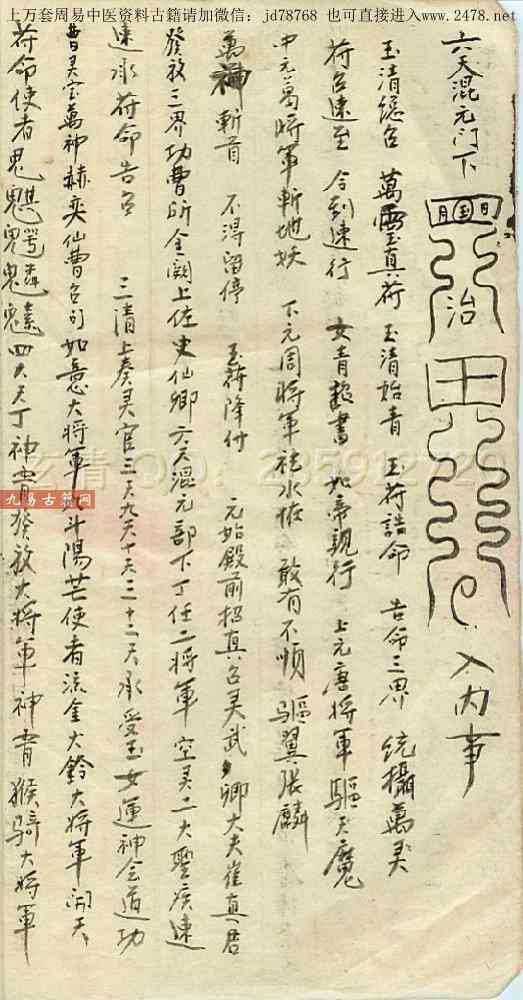 上万套周易中医资料古籍请加微信：jd78768 也可直接进入www.2478.net
六天混元门下
日王月
治
入內事
玉清總召 萬靈玉真符 玉清始青 玉符誥命 告命三界 統攝萬灵
符召速至 令到速行 女青詔書 如帝親行 上元唐將軍驅天魔
中元葛將軍斬地妖 下元周將軍 水怪 敢有不順 驅翼張麟
萬神斬首 不得留停 玉符降付 元始殿前招真召灵武卿大夫崔真君
發放三界功曹 金闕上佐史仙卿六天混元部下丁任二將軍 空灵二大聖疾速
速承符命告召 三清上奏灵官三天九天十天三十二天承受玉女運神会道功
曹灵宝萬神赫奕仙曹召 如意大將軍 斗陽芒使者流金火鈴大將軍 天
符命使者鬼魌 四大天丁神霄發放大將軍神霄猴騎大將軍
九易古籍网
玄清 QQ: 285912720